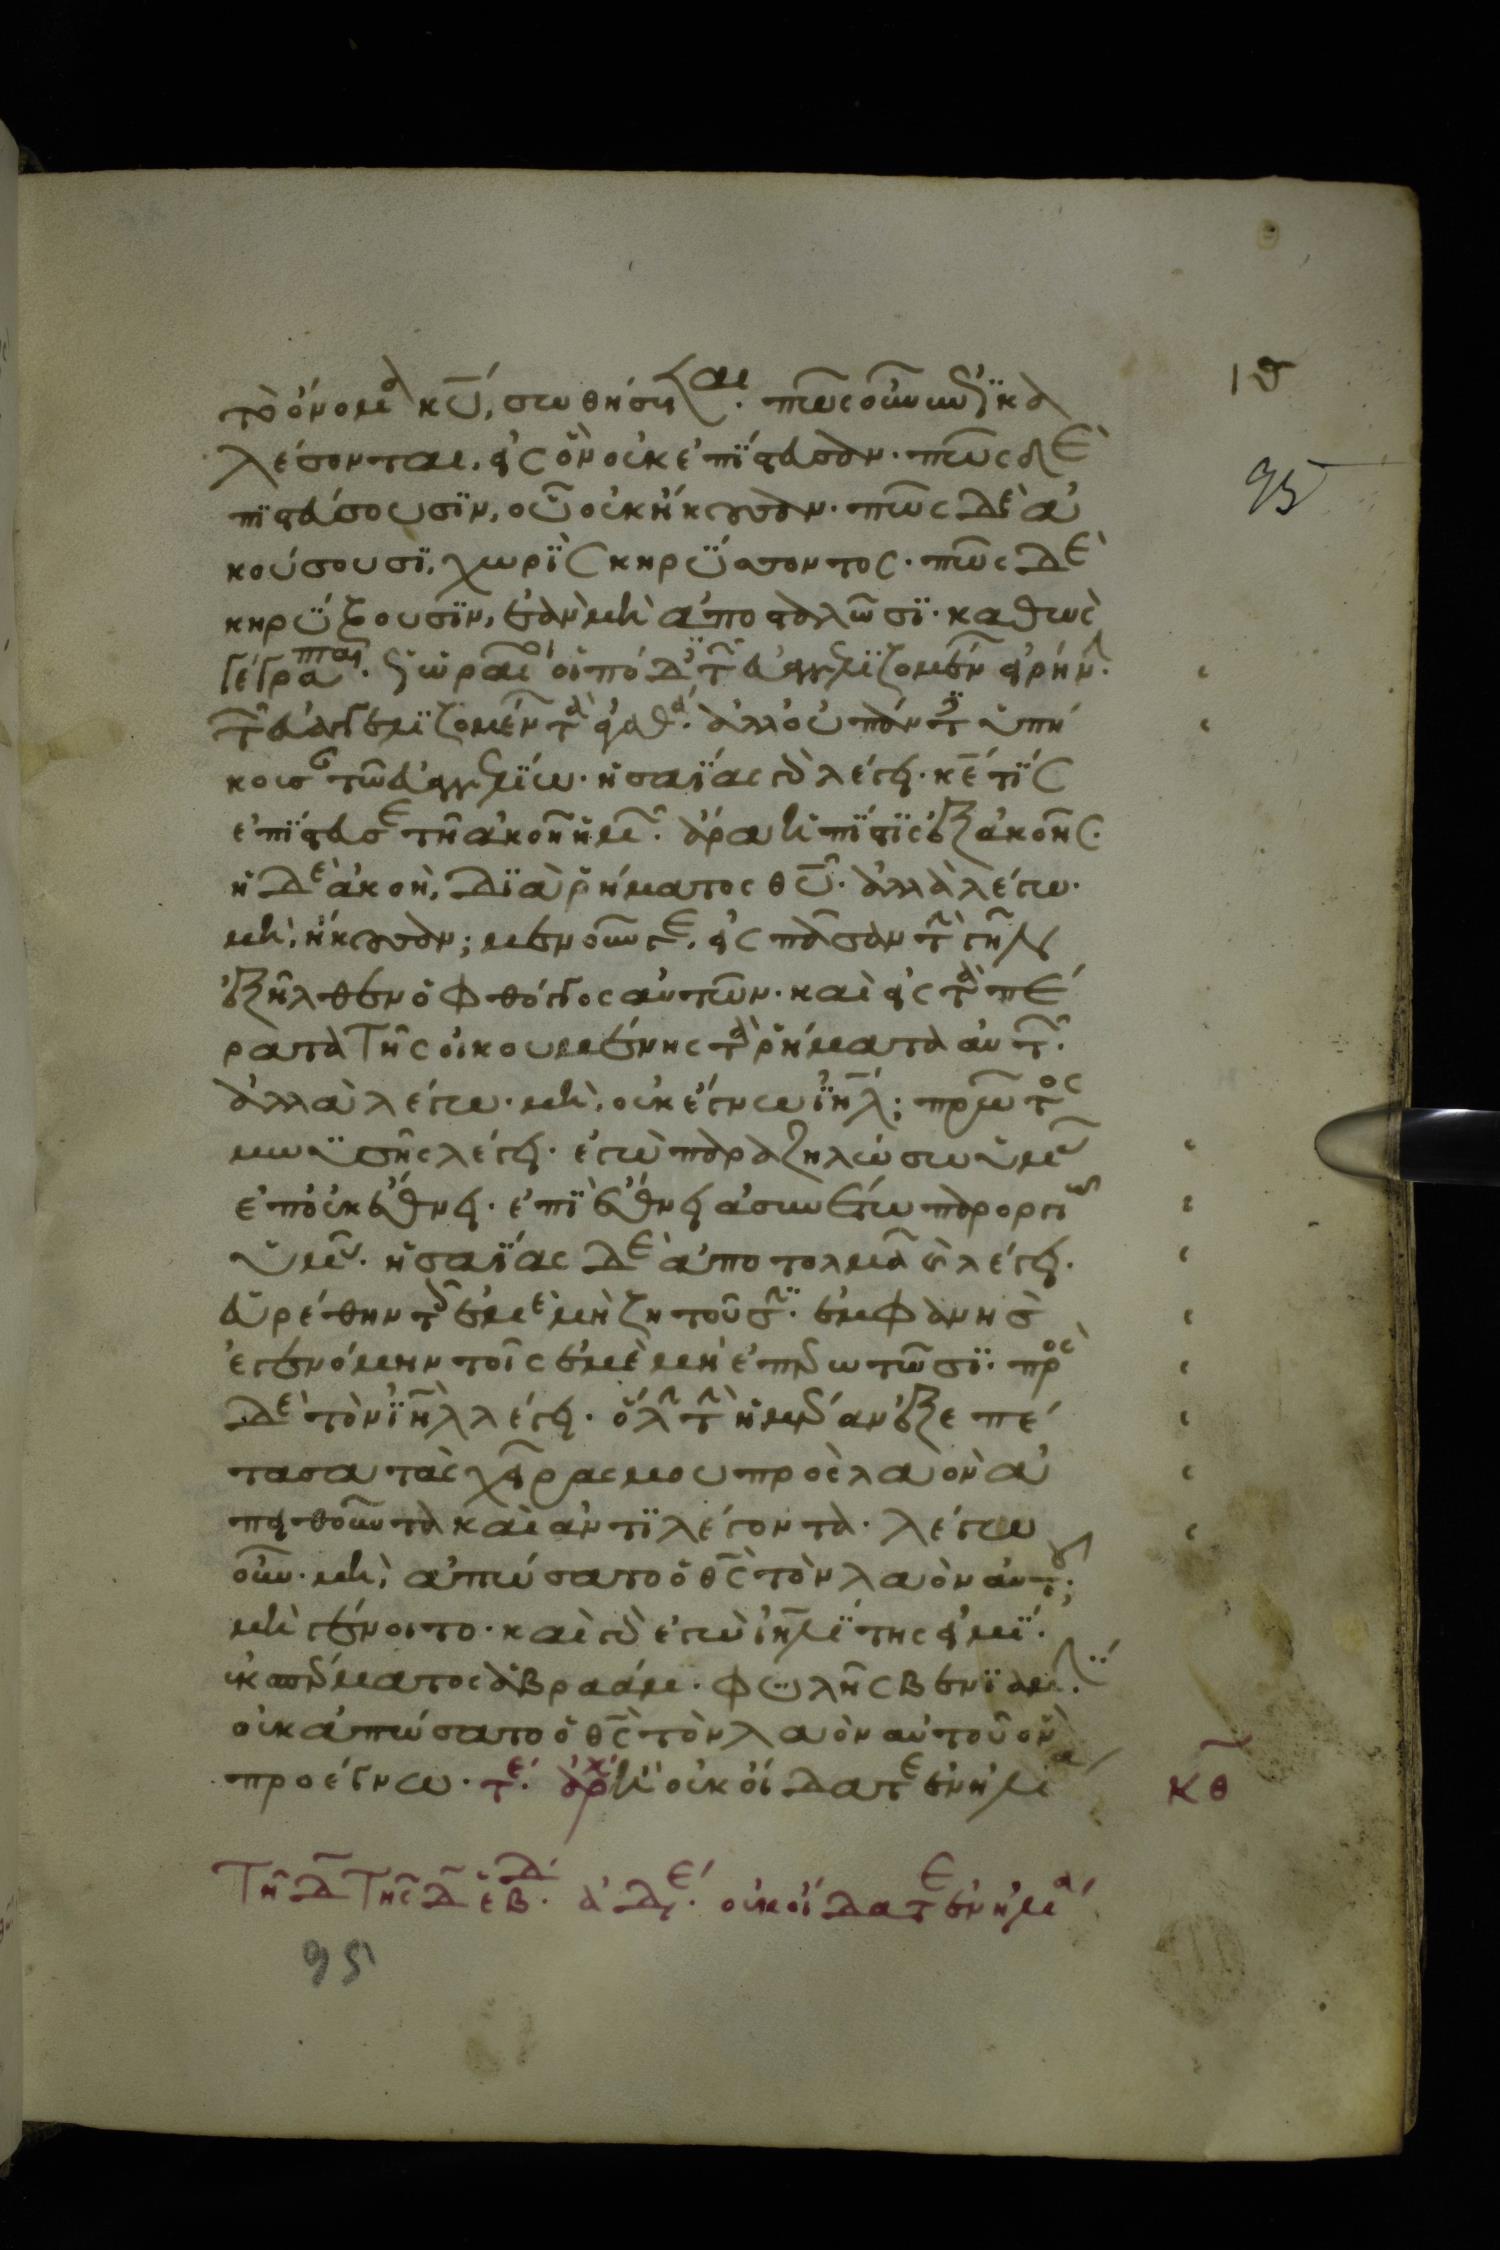 ιθ
τὸ ὄνομα κυ, σωθήσεται. πῶς οὖν ἐπικα
λέσονται, εἰς ὃν οὐκ ἐπίστευσαν. πῶς δὲ
πιστεύσουσιν, οὗ οὐκ ἤκουσαν. πῶς δὲ ἀ
κούσουσι, χωρὶς κηρύσσοντος. πῶς δὲ
κηρύξουσιν, ἐὰν μὴ ἀποσταλῶσι. καθὼς
γέγραπται. ὡς ὡραῖοι οἱ πόδες τῶν εὐαγγελιζομένων εἰρήνην.
τῶν εὐαγγελιζομένων τὰ ἀγαθά. ἀλλ οὐ πάντες ὑπή
κουσαν τῶ εὐαγγελίω. ἡσαΐας γὰρ λέγει. κε τίς
ἐπίστευσε τῆ ἀκοῆ ἡμῶν. ἄρα ἡ πίστις ἐξ ἀκοῆς.
ἡ δὲ ἀκοὴ, διὰ ῥήματος θυ. ἀλλὰ λέγω.
μὴ, ἤκουσαν; μενοῦνγε. εἰς πᾶσαν τὴν γῆν
ἐξῆλθεν ὁ φθόγγος αὐτῶν. καὶ εἰς τὰ πέ
ρατα τῆς οἰκουμένης τὰ ῥήματα αὐτῶν.
ἀλλὰ λέγω. μὴ, οὐκ ἔγνω ιηλ; πρῶτος
μωϋσῆς λέγει. ἐγὼ παραζηλώσω ὑμᾶς
ἐπ οὐκ ἔθνει. ἐπὶ ἔθνει ἀσυνέτω παροργιῶ
ὑμᾶς. ἡσαΐας δὲ ἀποτολμᾶ καὶ λέγει.
εὑρέθην τοῖς ἐμὲ μὴ ζητοῦσιν. ἐμφανὴς
ἐγενόμην τοῖς ἐμὲ μὴ ἐπερωτῶσι. πρὸς
δὲ τὸν ιηλ λέγει. ὅλην τὴν ἡμέραν ἐξεπέ
τασα τὰς χεῖρας μου πρὸς λαὸν ἀ
πειθοῦντα καὶ ἀντιλέγοντα. λέγω
οὖν. μὴ, ἀπώσατο ὁ θς τὸν λαὸν αὐτοῦ;
μὴ γένοιτο. καὶ γὰρ ἐγὼ ιηλίτης εἰμί.
ἐκ σπέρματος ἀβραάμ. φυλῆς βενιαμίν.
οὐκ ἀπώσατο ὁ θς τὸν λαὸν αὐτοῦ ὃν
προέγνω. τε. ἀρχ ἢ οὐκ οἴδατε ἐν ἠλία
κθ
Τῆ δ τῆς δ ἑβ. ἀδε. οὐκ οἴδατε ἐν ἠλία
95